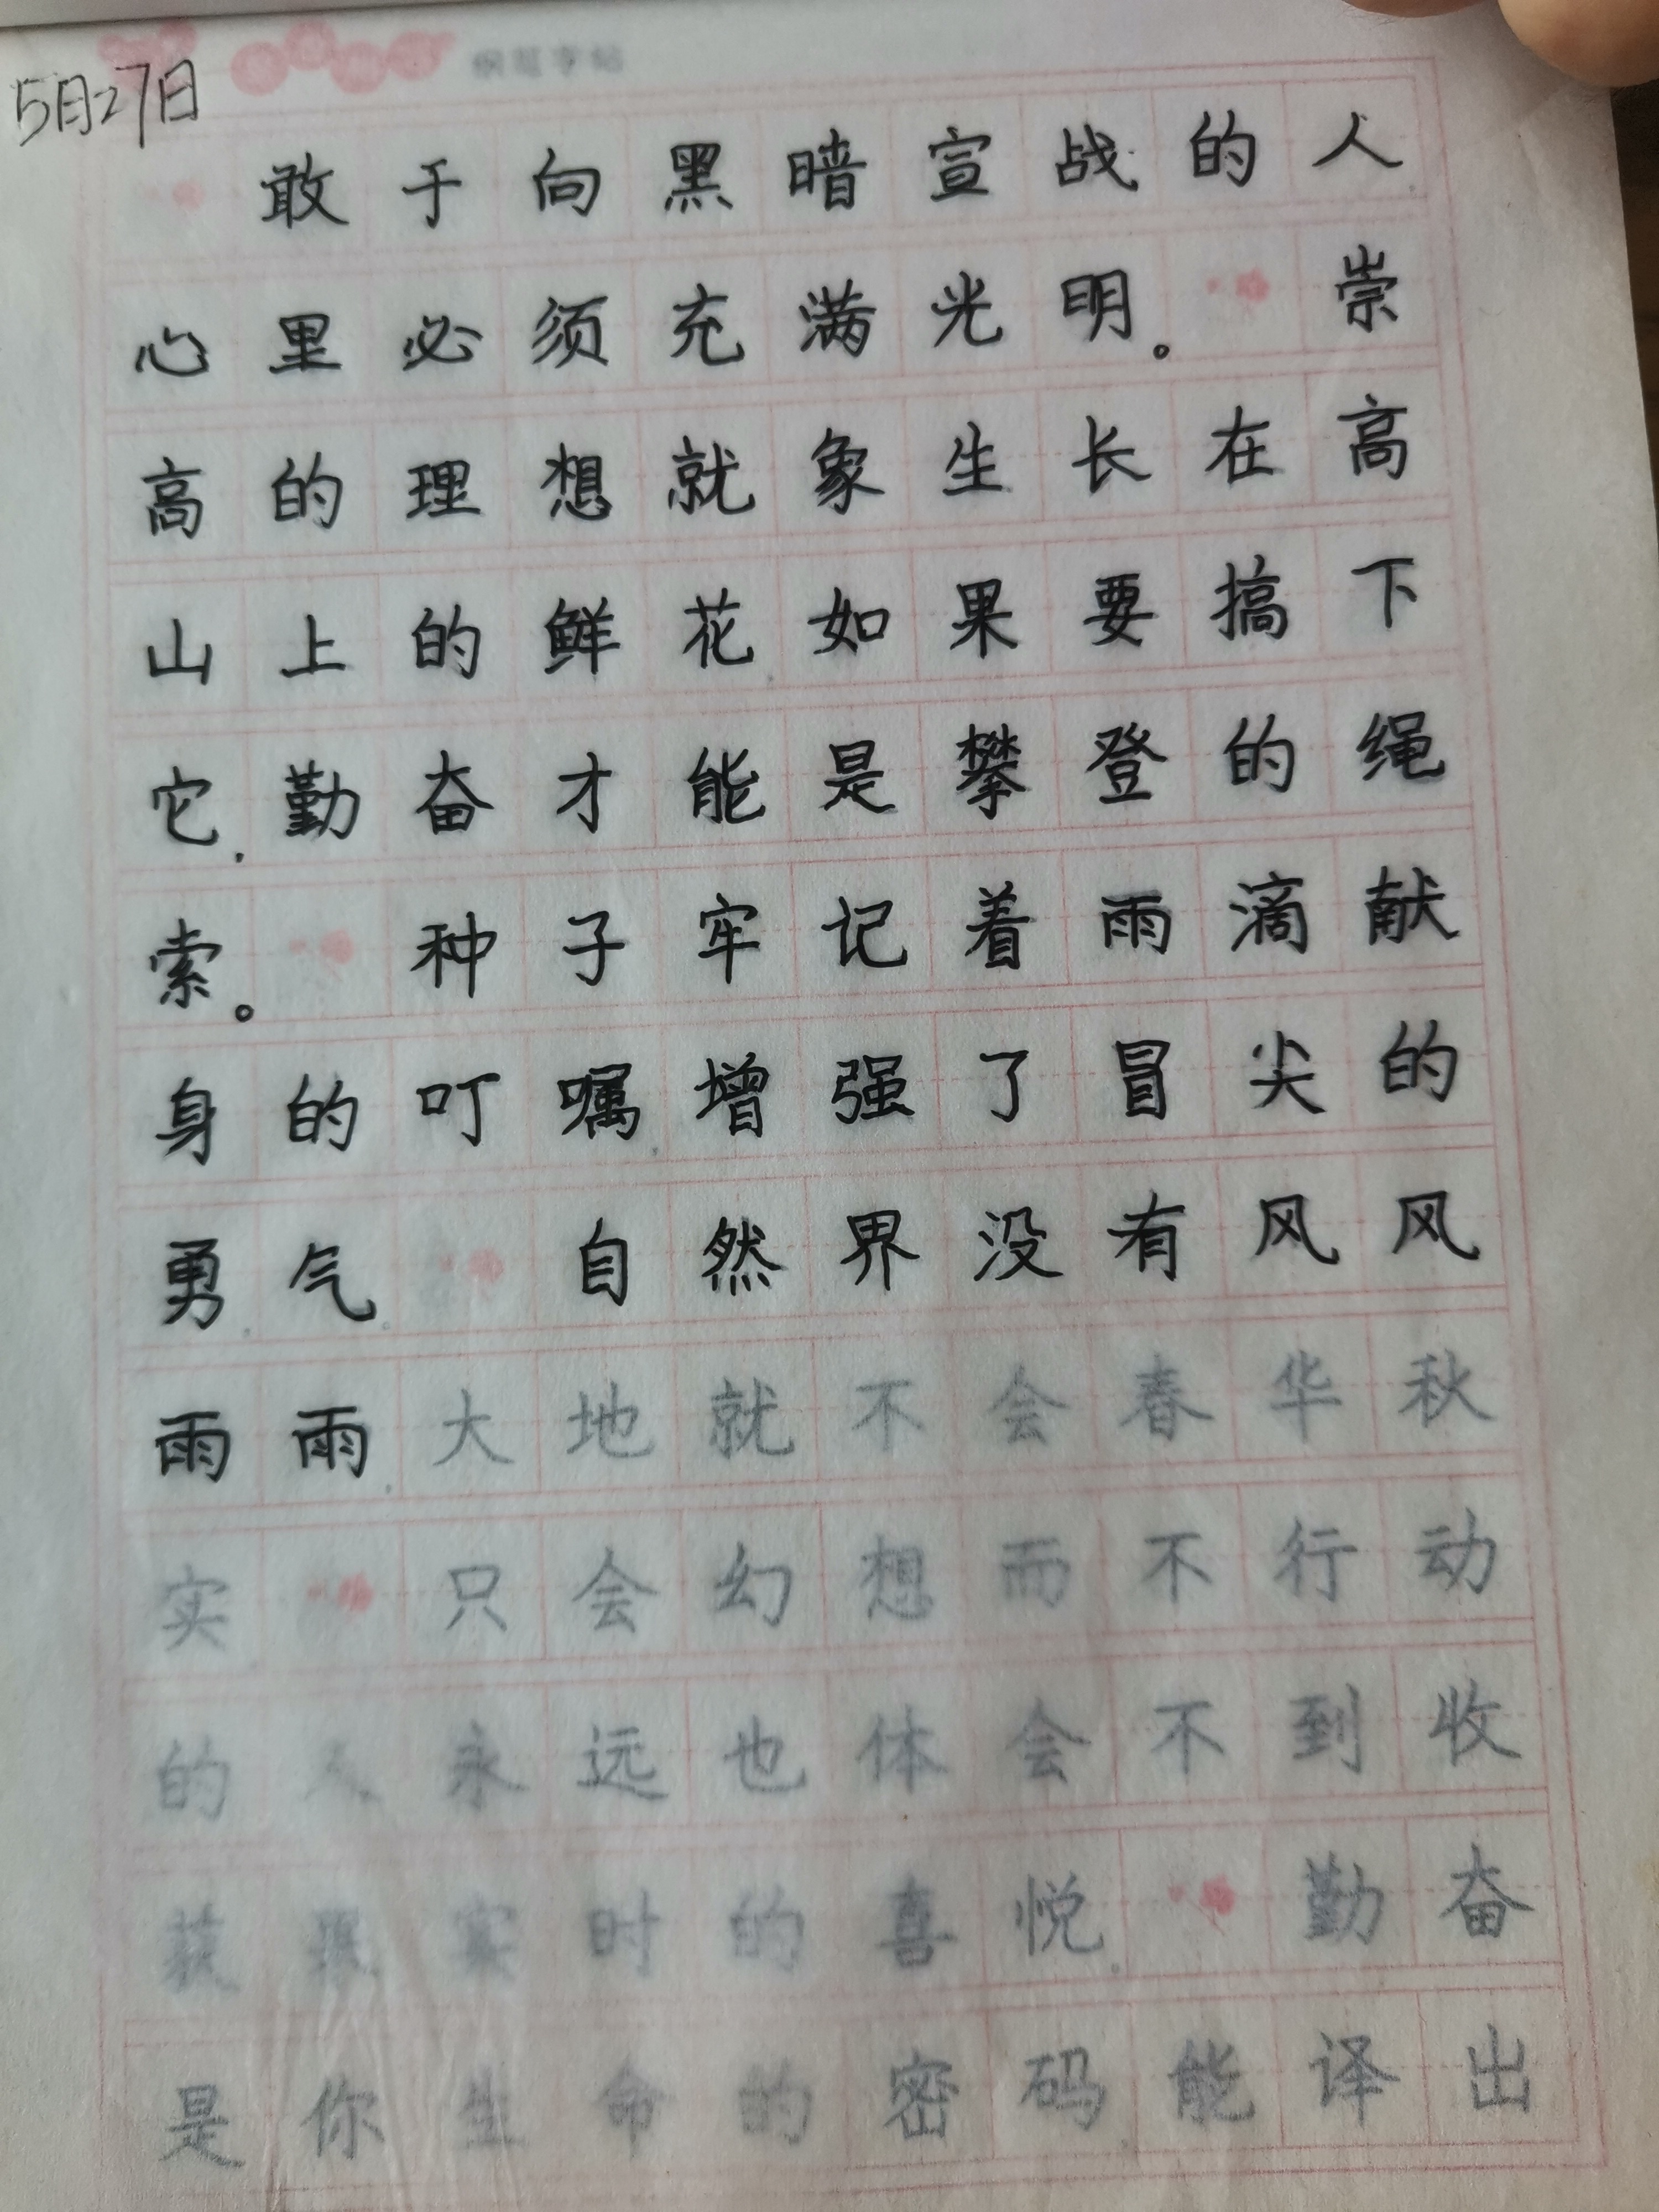 钢笔字帖
5月27日
敢于向黑暗宣战的人
心里必须充满光明。 崇
高的理想就象生长在高
山上的鲜花如果要搞下
它.勤奋才能是攀登的绳
索。 种子牢记着雨滴献
身的叮嘱增强了冒尖的
勇气 自然界没有风风
雨雨大地就不会春华秋
实 只会幻想而不行动
的人永远也体会不到收
获果实时的喜悦 勤奋
是你生命的密码能译出